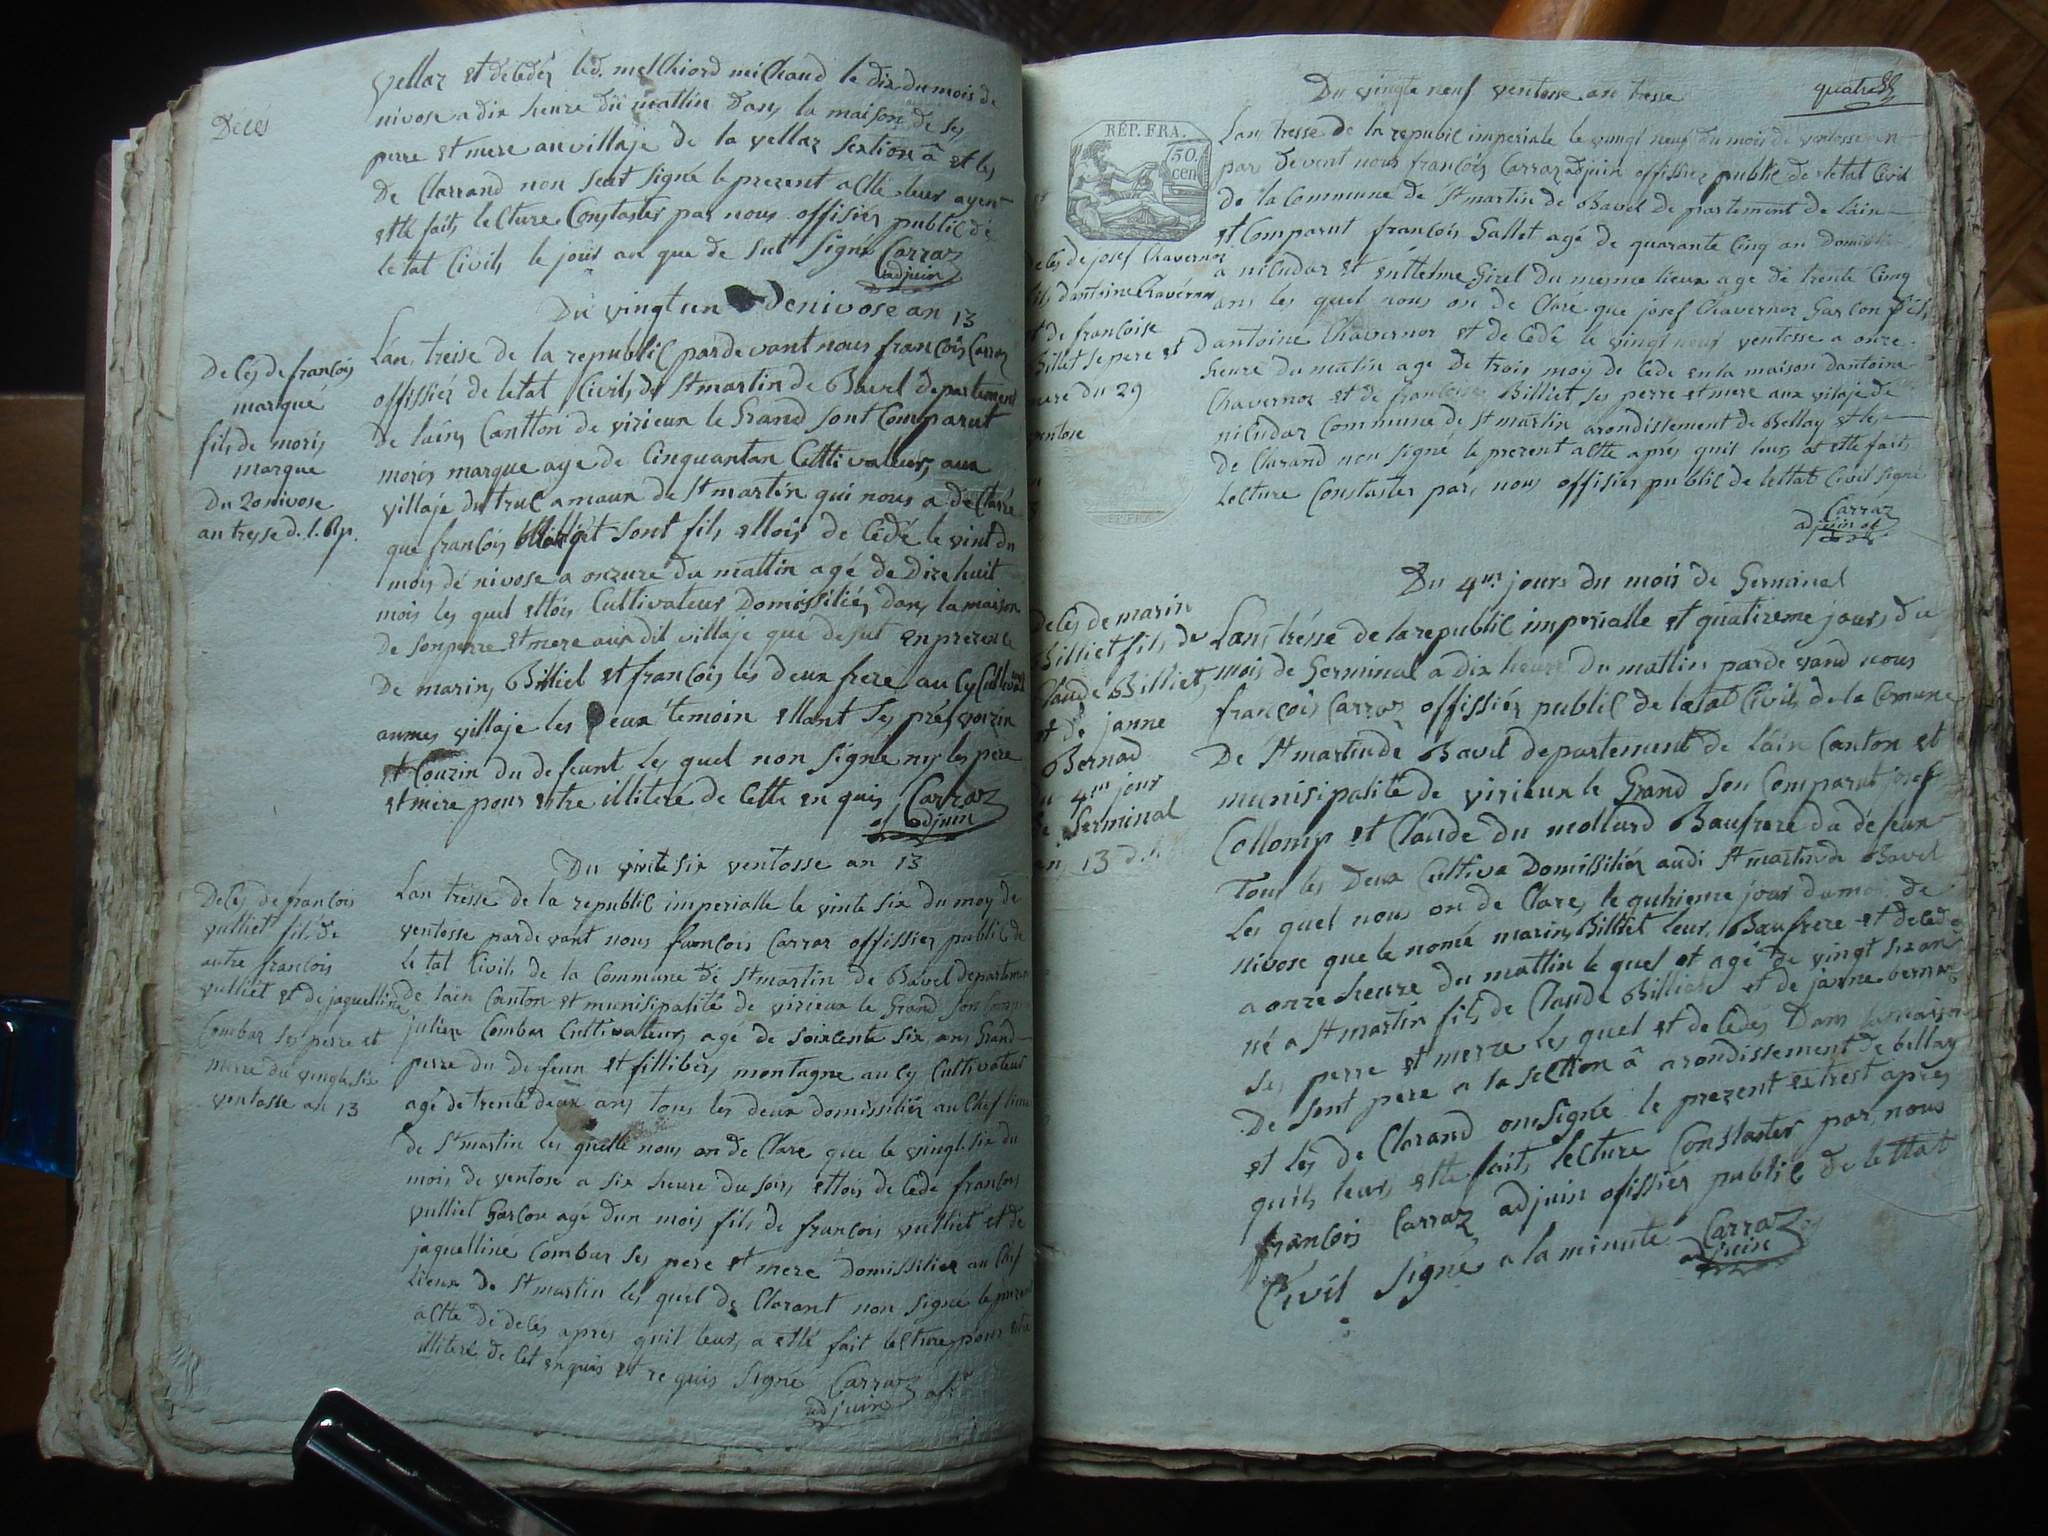 Déces
vellaz et déledéz led. melkiord miChaud le dix du mois de
nivose a dix heure du mattin Dans la maison de ses
perre et mere au villaje de la vellaz sextion â et les
De Clarrand non seut signé le prezent actte leur ayen
etté fait, lecture Constaster par nous offisiér public dé
letat Civils le jour an que de sut signé Carraz
adjuin
Du vingt un de nivose an 13
Deces de françois
marqué
fils de moris
marque
Du 20 nivose
an treyse d. l. Rp.
Lan treise de la republic pardevant nous françois Carraz
offissiér de letat Civils de St martin de Bavel departement
de lain, Cantton de virieux le Grand sont Comparut
moris marque age de Cinquantan Cultivateur, aux
villaje du truc amoux de St martin qui nous a de Clare
que françois sont fils ettois de Cédé le vint du
mois dé nivose a onzure du mattin agé de Dixehuit
mois les quel ettois Cultivateur Domissiliér, dans la maison
de son perre et mere aux dit villaje que desut en prezence
De marin, Billiet et françois les deux frere au Cy Cultivat
aumes villaje les Deux temoin ettant ses prés voizin
et Couzin du defeunt les quel non signé ny les pere
et mere pour estre illiteré de Cette en quis, Carraz
of adjuin
Du vinte six ventosse an 13
Deces de françois
vulliet fils de
autre françois
vulliét et de jaquelline
Combax ses perre et
merre du vingt six
ventosse an 13
Lan tresse de la republic imperialle le vinte six du moy de
ventosse pardevant nous françois Carraz offissier public de
letat Civils de la Commune dé St martin de Bavel departemen
de lain Canton et munisipalité de virieux le Grand son Comp
julien Combax Cultivatteur, agé de soixcente six ans Grand
perre du defeun et fillibers montagne au Cy Cultivateur
agé de trente deux ans tous les deux domissiliér au Chef lieux
de St martin les quelle nous on de Clare que le vingt six du
mois de ventose a six heure du soir, ettois de Cede françois
vulliet Garçon agé dun mois fils de françois vulliet et de
jaquelline Combax ses pere et mere domissilier au Chef
lieux de St martin les quel de Clarant non signé le prezent
actte de deces apres quil leurs a etté fait lecture pour estre
illiteré de Cet enquis et requis signé Carraz
adjuin
Du vingte neuf ventose an tresse
quatre
RÉP. FRA.
50.
cen
deces de josef Chavernoz
fils dantoine Chavernoz
et de francoise
Billiet se pere et
mere du 29
ventose
Lan tresse de la republic imperiale le vingt neuf du mois de ventosse an
par devent nous françois Carraz adjuin offissiez public de letat Civil
de la Commune de St martin de Bavel departement de lain
et Comparut françois Gallet agé de quarante Cinq an Domissilié
a niCudaz et entelme Girel du mesme lieux age de trente Cinq
ans les quel nous on de Clare que josef Chavernoz Garçon fils
dantoine Chavernoz et de Cede le vingt neuf ventosse a onze
heure du matin age de trois moy de Cede en la maison dantoine
Chavernoz et de francoise Billiet ses perre et mere aux vilaje de
niCudaz Commune de St martin arondissement de Bellay et les
de Clarand non signé le prezent actte aprés quil leurs at etté fait,
lecture Constaster par, nous offisier public de lettat Civil signé
Carraz
adjuin of
Du 4me jours du mois de Germinal
deces de marin
Billiet fils de
Claude Billiet,
et de janne
Bernad
du 4me jour
de Germinal
an 13
Lans trésse de la republic imperialle et quatireme jours du
mois de Germinal a dix heure du mattin, parde vand nous
françois Carraz offissiér public de letat Civils de la Comune
De St martin dé Bavel departement de lain Canton et
munisipalité de virieux le Grand son Comparut josef
Collomp et Claude du mollard Baufrere du défeun
Tout les Deux Cultiva Domissiliér audi St martin de Bavel
Les quel nous on de Clare, le quhieme jour du moi de
nivose que le nomé marin, Billiet leur, Baufrere et decede
a onze heure du mattin le quel et agé de vingt six an
né a St martin fils de Claude Billiet et de janne bernad
ses perre et merre les quel et de Cedes Dans la maison
De sont pere a la section â arondissement de bellay
et les de Clarand on signé le prezent extrest apres
quils leurs etté fait, lecture Constaster par, nous
françois Carraz adjuin ofissiér public de lettat
Civil signé a la minute Carraz
adjuin